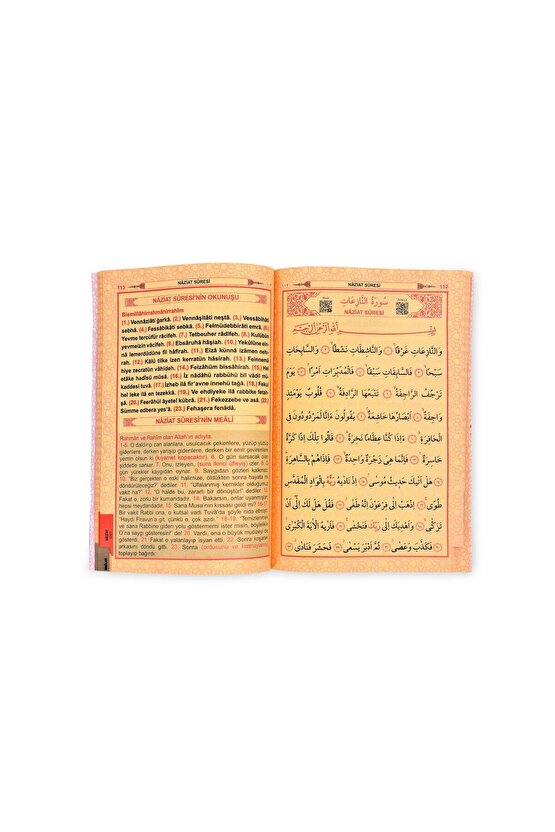 113
NÂZİAT SÛRESİ
NÂZİAT SÛRESİ'NİN OKUNUŞU
Bismillâhirrahmânirrahîm
(1.) Vennâziâti ğarkâ. (2.) Vennâşitâti neştâ. (3.) Vessâbihâti
sebhâ. (4.) Fessâbikâti sebkâ. (5.) Felmüdebbirâti emrâ. (6.)
Yevme tercüfür râcifeh. (7.) Tetbeuher râdifeh. (8.) Kulûbüy
yevmeiziv vâcifeh. (9.) Ebsâruhâ hâşiah. (10.) Yekûlûne ein-
nâ lemerdûdûne fil hâfirah. (11.) Eizâ künnâ izâmen nehı-
rah. (12.) Kâlû tilke izen kerratün hâsirah. (13.) Feinnemâ
hiye zecratün vâhideh. (14.) Feizâhüm bissâhirah. (15.) Hel
etâke hadîsü mûsâ. (16.) İz nâdâhü rabbühû bil vâdil mü-
kaddesi tuvâ. (17.) İzheb ilâ fir'avne innehû tağâ. (18.) Fekul
hel leke ilâ en tezekkâ. (19.) Ve ehdiyeke ilâ rabbike fetah-
şâ. (20.) Feerâhül âyetel kübrâ. (21.) Fekezzebe ve asâ. (22.)
Sümme edbera yes'â. (23.) Fehaşera fenâdâ.
NÂZİAT SÛRESİ'NİN MEÂLİ
Rahmân ve Rahîm olan Allah'ın adıyla.
1-5. O daldırıp can alanlara, usulcacık çekenlere, yüzüp yüzüp
gidenlere, derken yarışıp gidenlere, derken bir emri çevirenlere
yemin olsun ki (kıyamet kopacaktır). 6. O gün sarsacak olan
şiddetle sarsar. 7. Onu, izleyen, (sura ikinci üfleyiş) izler. 8. O
gün yürekler kaygıdan oynar. 9. Saygısızdan gözleri kalkmaz.
10. "Biz gerçekten o eski halimize, öldükten sonra hayata mı
döndürüleceğiz?" 11. "Ufalanmış kemikler olduğumuz
vakit mı?" 12. "O hâlde bu, zararlı bir dönüştür!" dediler. 13.
Fakat o, zorlu bir kumandadır. 14. Bakarsın, onlar uyanmıştır,
hepsi meydandadır. 15. Sana Musa'nın kıssası geldi mi? 16-17.
Bir vakit Rabbi ona, o kutsal vadi Tuvâ'da şöyle nida etmişti:
"Haydi Firavun'a git, çünkü o, çok azdı." 18-19. "Temizlenmek
ve sana Rabbine giden yolu göstermemi ister misin, böylelikle
O'na saygı göstermesin" de! 20. Vardı, ona o büyük mucizeyi de
gösterdi. 21. Fakat o yalanlayıp isyan etti. 22. Sonra koşarak
arkasını döndü gitti. 23. Sonra (ordusunu ve kuvvetlerini)
toplayıp bağırdı.
NÂZİAT SÛRESİ
112
سُورَةُ النَّازِعَاتِ
NÂZİAT SÛRESİ
بِسْمِ اللّٰهِ الرَّحْمٰنِ الرَّحِيمِ
وَالنَّازِعَاتِ غَرْقًا ﴿١﴾ وَالنَّاشِطَاتِ نَشْطًا ﴿٢﴾ وَالسَّابِحَاتِ
سَبْحًا ﴿٣﴾ فَالسَّابِقَاتِ سَبْقًا ﴿٤﴾ فَالْمُدَبِّرَاتِ اَمْرًا ﴿٥﴾ يَوْمَ
تَرْجُفُ الرَّاجِفَةُ ﴿٦﴾ تَتْبَعُهَا الرَّادِفَةُ ﴿٧﴾ قُلُوبٌ يَوْمَئِذٍ
وَاجِفَةٌ ﴿٨﴾ اَبْصَارُهَا خَاشِعَةٌ ﴿٩﴾ يَقُولُونَ ءَاِنَّا لَمَرْدُودُونَ فِي
الْحَافِرَةِ ﴿١٠﴾ ءَاِذَا كُنَّا عِظَامًا نَخِرَةً ﴿١١﴾ قَالُوا تِلْكَ اِذًا كَرَّةٌ
خَاسِرَةٌ ﴿١٢﴾ فَاِنَّمَا هِيَ زَجْرَةٌ وَاحِدَةٌ ﴿١٣﴾ فَاِذَا هُمْ بِالسَّاهِرَةِ
﴿١٤﴾ هَلْ اَتٰيكَ حَدِيثُ مُوسٰى ﴿١٥﴾ اِذْ نَادٰيهُ رَبُّهُ بِالْوَادِ الْمُقَدَّسِ
طُوًى ﴿١٦﴾ اِذْهَبْ اِلٰى فِرْعَوْنَ اِنَّهُ طَغٰى ﴿١٧﴾ فَقُلْ هَلْ لَكَ اِلٰى اَنْ
تَزَكّٰى ﴿١٨﴾ وَاَهْدِيَكَ اِلٰى رَبِّكَ فَتَخْشٰى ﴿١٩﴾ فَاَرٰيهُ الْاٰيَةَ الْكُبْرٰى
﴿٢٠﴾ فَكَذَّبَ وَعَصٰى ﴿٢١﴾ ثُمَّ اَدْبَرَ يَسْعٰى ﴿٢٢﴾ فَحَشَرَ فَنَادٰى ﴿٢٣﴾